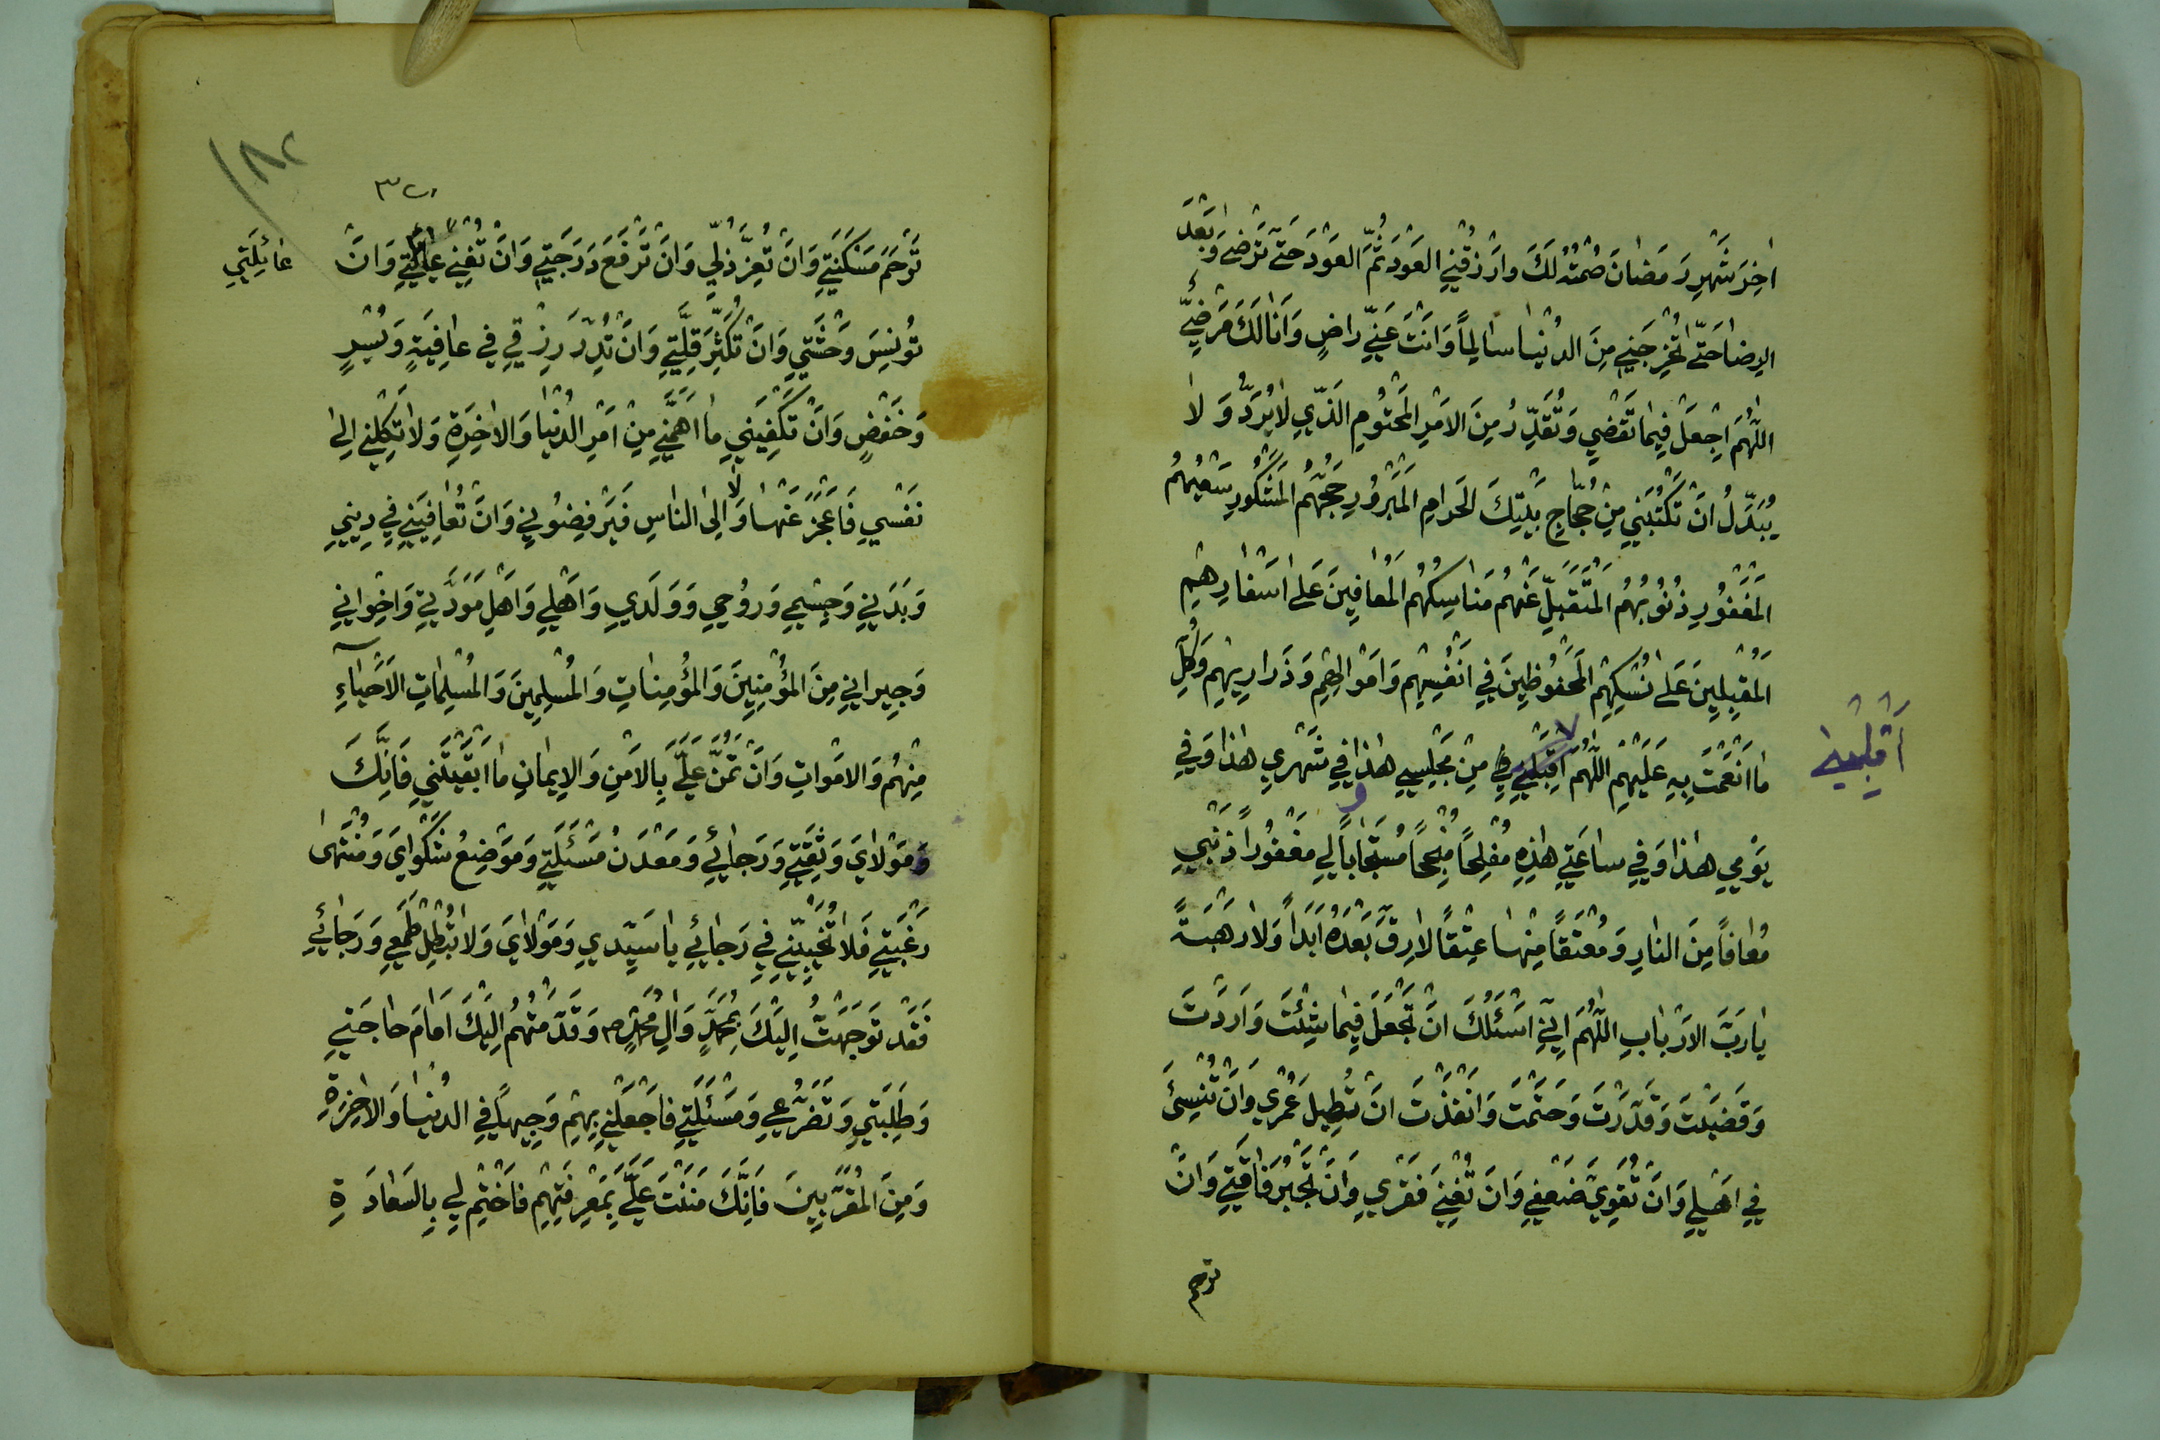 اٰخِرَ شَهْرِ رَمَضٰانَ صُمْتُهُ لَكَ وَارْزُقْنِي العَوْدَ ثُمَّ العَوْدَ حَتّٰى تَرْضىٰ وَبَعْدَ
الرِضٰا حَتّٰى تُخْرِجَنِي مِنَ الدُنْيٰا سٰالِماً وَاَنْتَ عَنّيِ رٰاضٍ وَاَنٰا لَكَ مَرْضِيٌّ
اللّٰهُمَّ اجْعَلْ فِيمٰا تَقْضي وَتُقَدِّرُ مِنَ الاَمْرِ المَحْتُومِ الَّذِي لاٰ يُرَدُّ وَلاٰ
يُبَدَّلُ اَنْ تَكْتُبَنيِ مِنْ حُجّٰاجِ بَيْتِكَ الحَرٰامِ المَبْرُورِ حَجُّهُمُ المَشْكُورِ سَعْيُهُمُ
المَغْفُورِ ذُنُوبُهُمُ المُتَقَبَّلِ عَنْهُمْ مَنٰاسِكُهُمُ المُعٰافِينَ عَلىٰ اَسْفٰارِهِمِ
المُقْبِلِينَ عَلىٰ نُسُكِهِمُ المَحْفُوظِينَ فِي اَنْفُسِهِم وَاَمْوٰالِهِمِ وَذَرٰارِيهِم وَكُلِّ
مٰا اَنْعَمْتَ بِهِ عَلَيْهِمْ اللّٰهُمَّ اقْلِبْنِي مِنْ مَجْلِسِي هٰذٰا فِي شَهْرِي هٰذٰا وَفِي
اَقْلِبْنيِ
يَوْمِي هٰذٰا وَفِي سٰاعَتِي هٰذِهِ مُفْلِحاً مُنْجِحاً مُسْتَجٰاباً لِي مَغْفُوراً ذَنْبيِ
و
مُعٰافاً مِنَ النٰارِ وَمُعْتَقاً مِنْهٰا عِتْقاً لاٰ رِقَّ بَعْدَهُ اَبَداً وَلاٰ رَهْبَةً
يٰا رَبَّ الاَرْبٰابِ اللّٰهُمَّ اِنّيِ اَسْئَلُكَ اَنْ تَجْعَلَ فِيمٰا شِئْتَ وَاَرَدْتَ
وَقَضَيْتَ وَقَدَّرْتَ وَحَتَمْتَ وَاَنْفَذْتَ اَنْ تُطِيلَ عُمْرِي وَاَنْ تُنْسِئَ
فِي اَجَلِي وَاَنْ تُقَوِّيَ ضَعْفِي وَاَنْ تُغْنِيَ فَقْرِي وَاَنْ تَجْبُرَ فٰاقَتِي وَاَنْ
ترحم
١٨٢
٣٢٠
تَرْحَمَ مَسْكَنَتِي وَاَنْ تُعِزَّ ذُلّيِ وَاَنْ تَرْفَعَ دَرَجَتِي وَاَنْ تُغْنِيَ عٰائِلَتِي وَاَنْ
عٰائِلَتيِ
تُونِسَ وَحْشَتيِ وَاَنْ تُكَثِّرَ قِلَّتيِ وَاَنْ تُدِرَّ رِزْقِي فِي عٰافِيَةٍ وَيُسْرٍ
وَخَفْضٍ وَاَنْ تَكْفِيَنيِ مٰا اَهَمَّنيِ مِنْ اَمْرِ الدُنْيٰا وَالاٰخِرَةِ وَلاٰ تَكِلْنِي اِلىٰ
نَفْسِي فَاَعْجَزَ عَنْهٰا وَلاٰ اِلىٰ النٰاسِ فَيَرْفِضُونِي وَاَنْ تُعٰافِيَنيِ فِي دِينيِ
وَبَدَنِي وَجِسْمِي وَرُوحِي وَوَلَدِي وَاَهْلِي وَاَهْلِ مَوَدَّتيِ وَاِخْوٰانِي
وَجِيرٰانِي مِنَ المُؤْمِنِينَ وَالمُؤْمِنٰاتِ وَالمُسْلِمِينَ وَالمُسْلِمٰاتِ الاَحْيٰاۤءِ
مِنْهُمْ وَالاَمْوٰاتِ وَاَنْ تَمُنَّ عَلَيَّ بِالاَمْنِ وَالاِيمٰانِ مٰا اَبْقَيْتَنيِ فَاِنَّكَ
وَمَوْلاٰيَ وَثِقَتيِ وَرَجٰائِي وَمَعْدَنُ مَسْئَلَتيِ وَمَوْضِعُ شَكْوٰايَ وَمُنْتَهىٰ
رَغْبَتيِ فَلاٰ تُخَيِّبْنيِ فِي رَجٰائِي يٰا سَيِّدِي وَمَوْلاٰيَ وَلاٰ تُبْطِلْ طَمَعِي وَرَجٰائِي
فَقَدْ تَوَجَّهْتُ اِلَيْكَ بِمُحَمَّدٍ وَاٰلِ مُحَمَّدٍ ص وَقَدَّمْتُهُمْ اِلَيْكَ اَمٰامَ حٰاجَتيِ
وَطَلِبَتيِ وَتَضَرُّعِي وَمَسْئَلَتيِ فَاجْعَلْنيِ بِهِمْ وَجِيهاً فِي الدُنْيٰا وَالاٰخِرَةِ
وَمِنَ المُقَرَّبِينَ فَاِنَّكَ مَنَنْتَ عَلَيَّ بِمَعْرِفَتِهِم فَاخْتِمْ لِي بِالسَعٰادَةِ